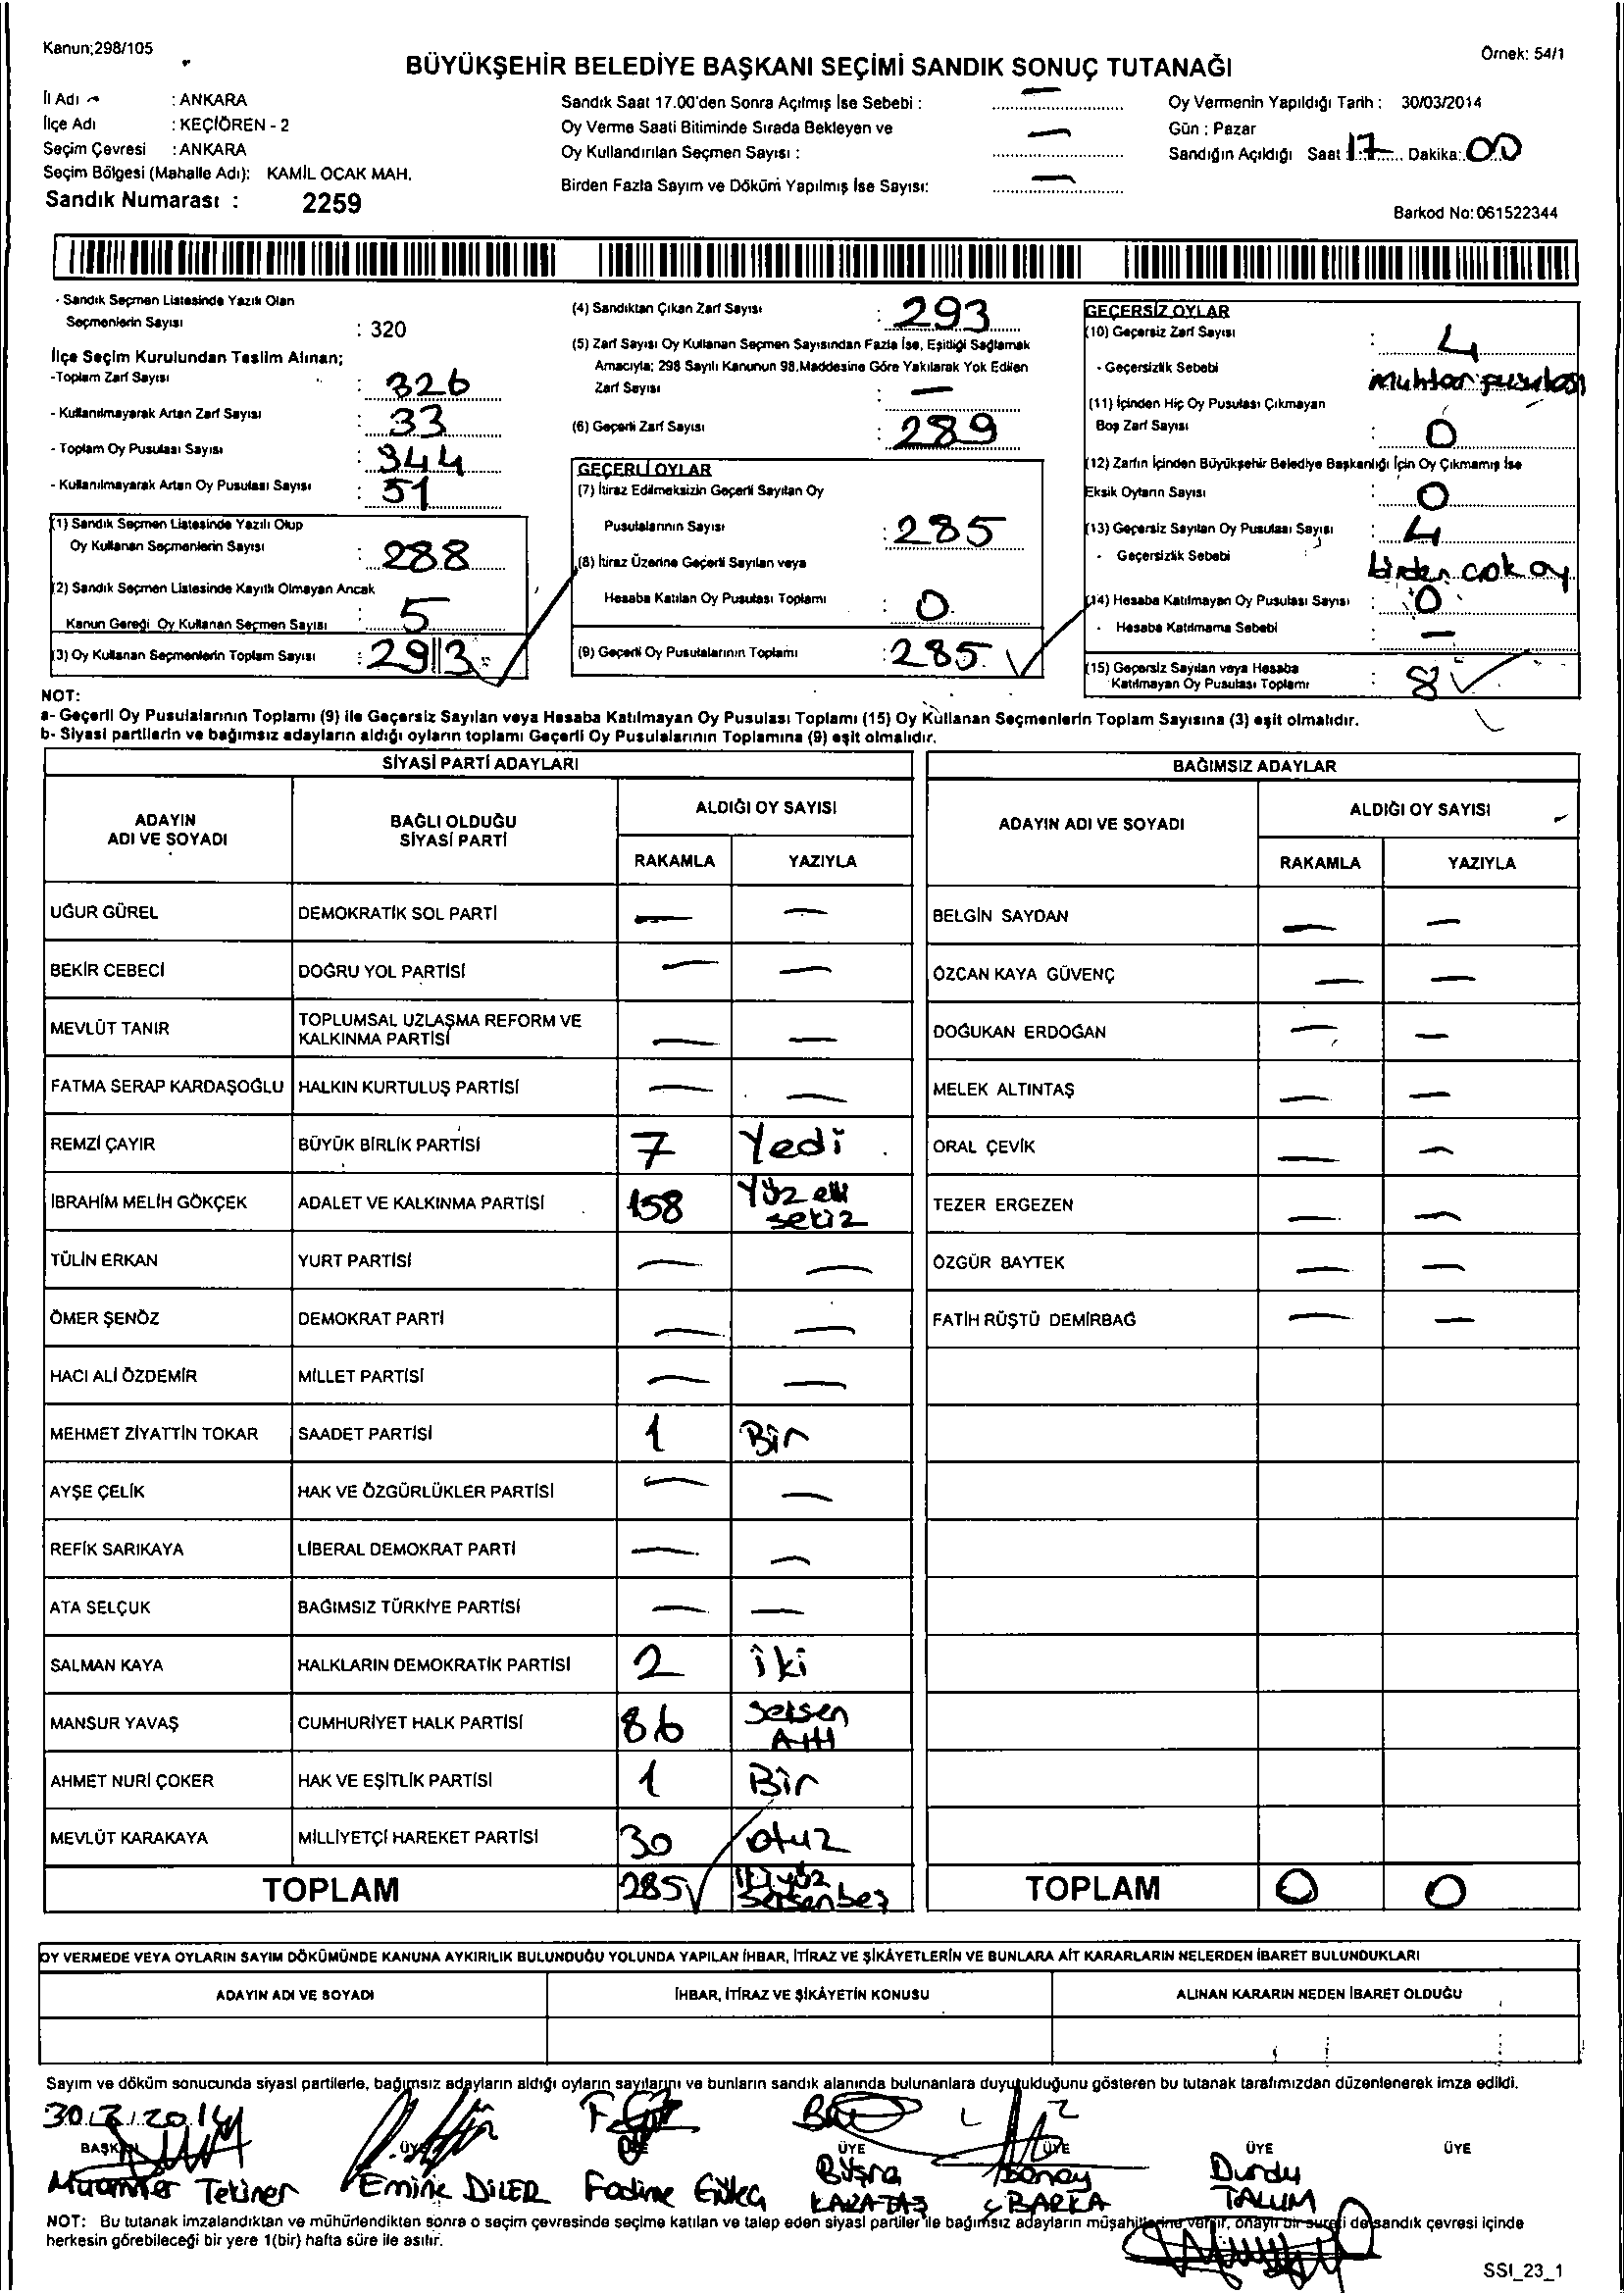 Kanun;298/105
Örnek: 54/1
BÜYÜKŞEHİR BELEDİYE BAŞKANI SEÇİMİ SANDIK SONUÇ TUTANAĞI
İl Adı : ANKARA
İlçe Adı : KEÇİÖREN - 2
Seçim Çevresi : ANKARA
Seçim Bölgesi (Mahalle Adı): KAMİL OCAK MAH.
Sandık Numarası : 2259
Sandık Saat 17.00'den Sonra Açılmış İse Sebebi : —
Oy Verme Saati Bitiminde Sırada Bekleyen ve
Oy Kullandırılan Seçmen Sayısı : —
Birden Fazla Sayım ve Döküm Yapılmış İse Sayısı: —
Oy Vermenin Yapıldığı Tarih : 30/03/2014
Gün : Pazar
Sandığın Açıldığı Saat : 17 Dakika: 00
Barkod No: 061522344
- Sandık Seçmen Listesinde Yazılı Olan
Seçmenlerin Sayısı : 320
İlçe Seçim Kurulundan Teslim Alınan;
-Toplam Zarf Sayısı : 326
- Kullanılmayarak Artan Zarf Sayısı : 33
- Toplam Oy Pusulası Sayısı : 344
- Kullanılmayarak Artan Oy Pusulası Sayısı : 51
(1) Sandık Seçmen Listesinde Yazılı Olup
Oy Kullanan Seçmenlerin Sayısı : 288
(2) Sandık Seçmen Listesinde Kayıtlı Olmayan Ancak
Kanun Gereği Oy Kullanan Seçmen Sayısı : 5
(3) Oy Kullanan Seçmenlerin Toplam Sayısı : 293
(4) Sandıktan Çıkan Zarf Sayısı : 293
(5) Zarf Sayısı Oy Kullanan Seçmen Sayısından Fazla İse, Eşitliği Sağlamak
Amacıyla; 298 Sayılı Kanunun 98.Maddesine Göre Yakılarak Yok Edilen
Zarf Sayısı : —
(6) Geçerli Zarf Sayısı : 289
GEÇERLİ OYLAR
(7) İtiraz Edilmeksizin Geçerli Sayılan Oy
Pusulalarının Sayısı : 285
(8) İtiraz Üzerine Geçerli Sayılan veya
Hesaba Katılan Oy Pusulası Toplamı : 0
(9) Geçerli Oy Pusulalarının Toplamı : 285
GEÇERSİZ OYLAR
(10) Geçersiz Zarf Sayısı : 4
- Geçersizlik Sebebi muhtar pusulası
(11) İçinden Hiç Oy Pusulası Çıkmayan
Boş Zarf Sayısı : 0
(12) Zarfın İçinden Büyükşehir Belediye Başkanlığı İçin Oy Çıkmamış İse
Eksik Oyların Sayısı : 0
(13) Geçersiz Sayılan Oy Pusulası Sayısı : 4
- Geçersizlik Sebebi birden çok oy
(14) Hesaba Katılmayan Oy Pusulası Sayısı : 0
- Hesaba Katılmama Sebebi : —
(15) Geçersiz Sayılan veya Hesaba
Katılmayan Oy Pusulası Toplamı : 8
NOT:
a- Geçerli Oy Pusulalarının Toplamı (9) ile Geçersiz Sayılan veya Hesaba Katılmayan Oy Pusulası Toplamı (15) Oy Kullanan Seçmenlerin Toplam Sayısına (3) eşit olmalıdır.
b- Siyasi partilerin ve bağımsız adayların aldığı oyların toplamı Geçerli Oy Pusulalarının Toplamına (9) eşit olmalıdır.
SİYASİ PARTİ ADAYLARI
ADAYIN ADI VE SOYADI BAĞLI OLDUĞU SİYASİ PARTİ ALDIĞI OY SAYISI
RAKAMLA YAZIYLA
UĞUR GÜREL DEMOKRATİK SOL PARTİ — —
BEKİR CEBECİ DOĞRU YOL PARTİSİ — —
MEVLÜT TANIR TOPLUMSAL UZLAŞMA REFORM VE KALKINMA PARTİSİ — —
FATMA SERAP KARDAŞOĞLU HALKIN KURTULUŞ PARTİSİ — —
REMZİ ÇAYIR BÜYÜK BİRLİK PARTİSİ 7 Yedi
İBRAHİM MELİH GÖKÇEK ADALET VE KALKINMA PARTİSİ 158 Yüz elli sekiz
TÜLİN ERKAN YURT PARTİSİ — —
ÖMER ŞENÖZ DEMOKRAT PARTİ — —
HACI ALİ ÖZDEMİR MİLLET PARTİSİ — —
MEHMET ZİYATTİN TOKAR SAADET PARTİSİ 1 Bir
AYŞE ÇELİK HAK VE ÖZGÜRLÜKLER PARTİSİ — —
REFİK SARIKAYA LİBERAL DEMOKRAT PARTİ — —
ATA SELÇUK BAĞIMSIZ TÜRKİYE PARTİSİ — —
SALMAN KAYA HALKLARIN DEMOKRATİK PARTİSİ 2 iki
MANSUR YAVAŞ CUMHURİYET HALK PARTİSİ 86 Seksen Altı
AHMET NURİ ÇOKER HAK VE EŞİTLİK PARTİSİ 1 Bir
MEVLÜT KARAKAYA MİLLİYETÇİ HAREKET PARTİSİ 30 otuz
TOPLAM 285 ikiyüz seksenbeş
BAĞIMSIZ ADAYLAR
ADAYIN ADI VE SOYADI ALDIĞI OY SAYISI
RAKAMLA YAZIYLA
BELGİN SAYDAN — —
ÖZCAN KAYA GÜVENÇ — —
DOĞUKAN ERDOĞAN — —
MELEK ALTINTAŞ — —
ORAL ÇEVİK — —
TEZER ERGEZEN — —
ÖZGÜR BAYTEK — —
FATİH RÜŞTÜ DEMİRBAĞ — —
TOPLAM 0 0
OY VERMEDE VEYA OYLARIN SAYIM DÖKÜMÜNDE KANUNA AYKIRILIK BULUNDUĞU YOLUNDA YAPILAN İHBAR, İTİRAZ VE ŞİKÂYETLERİN VE BUNLARA AİT KARARLARIN NELERDEN İBARET BULUNDUKLARI
ADAYIN ADI VE SOYADI İHBAR, İTİRAZ VE ŞİKÂYETİN KONUSU ALINAN KARARIN NEDEN İBARET OLDUĞU
Sayım ve döküm sonucunda siyasi partilerle, bağımsız adayların aldığı oyların sayılarını ve bunların sandık alanında bulunanlara duyurulduğunu gösteren bu tutanak tarafımızdan düzenlenerek imza edildi.
30.3.2014
BAŞKAN ÜYE ÜYE ÜYE ÜYE ÜYE ÜYE
Muammer Tekiner Emine DİLER Fadime Büşra KARATAŞ BARKA Durdu TALUM
NOT: Bu tutanak imzalandıktan ve mühürlendikten sonra o seçim çevresinde seçime katılan ve talep eden siyasi partiler ile bağımsız adayların müşahitlerine verilir, onaylı bir sureti de sandık çevresi içinde
herkesin görebileceği bir yere 1(bir) hafta süre ile asılır.
SSI_23_1